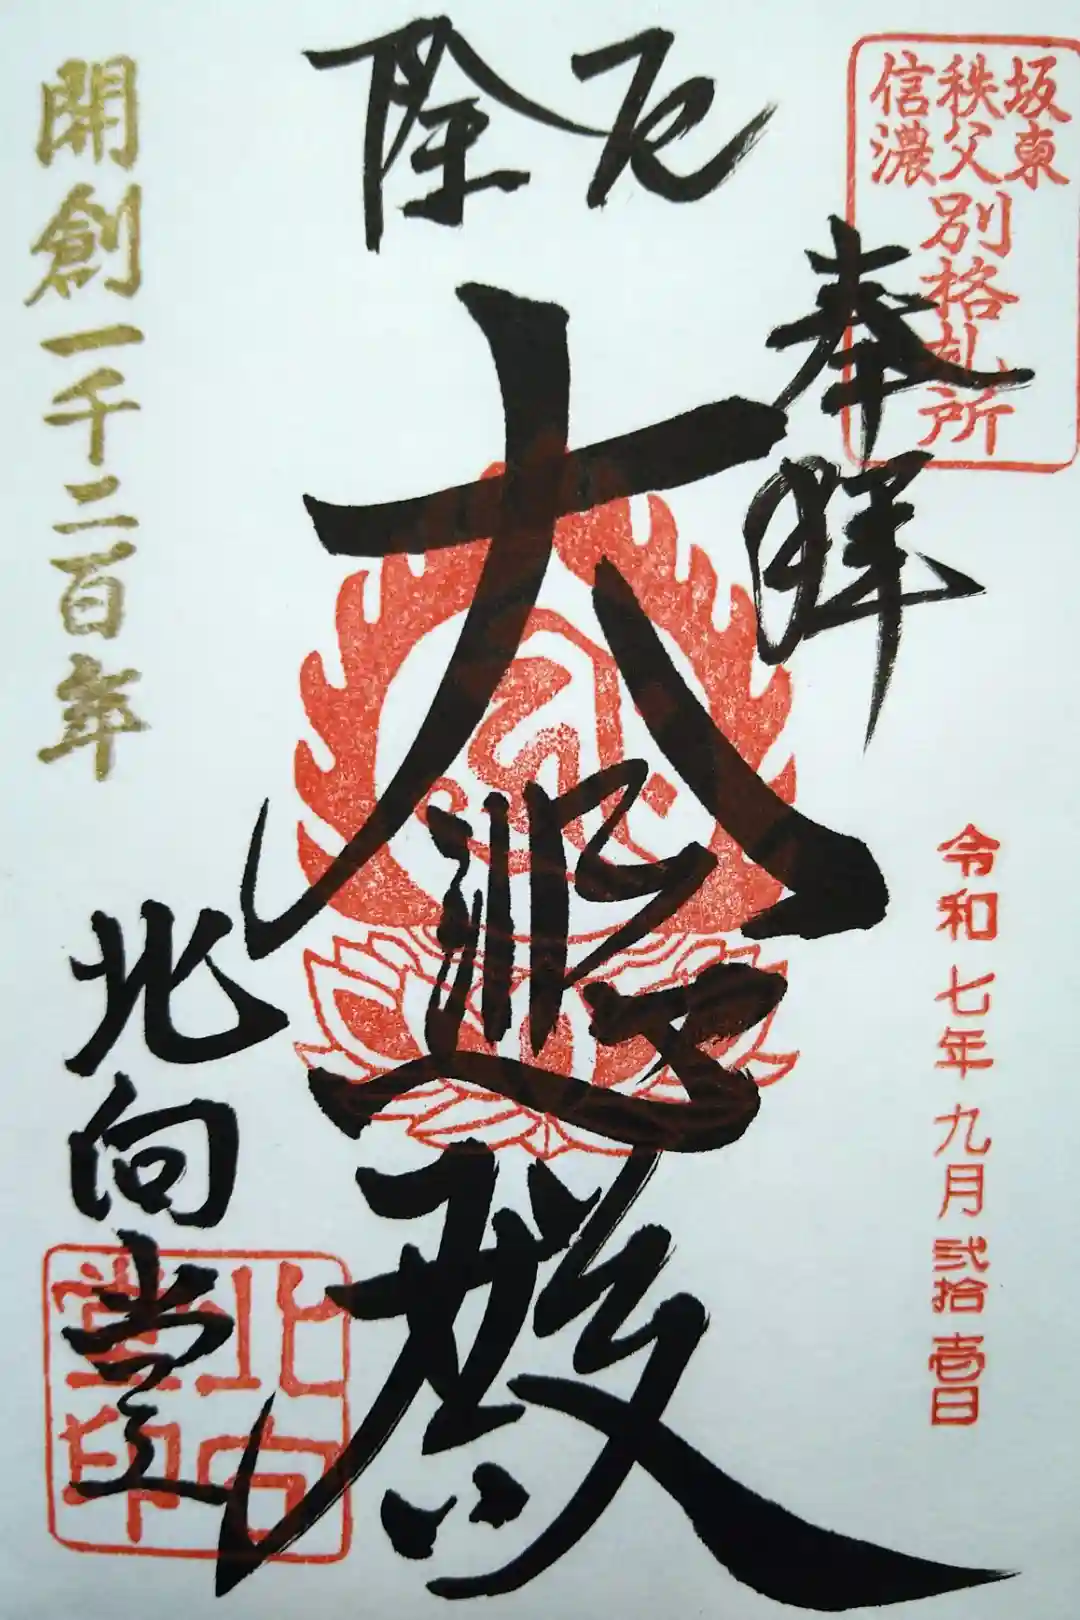 坂東
秩父
信濃
別格札所
奉拝
令和七年九月弐拾壱日
厄除
大悲殿
北向堂
北向
堂印
開創一千二百年